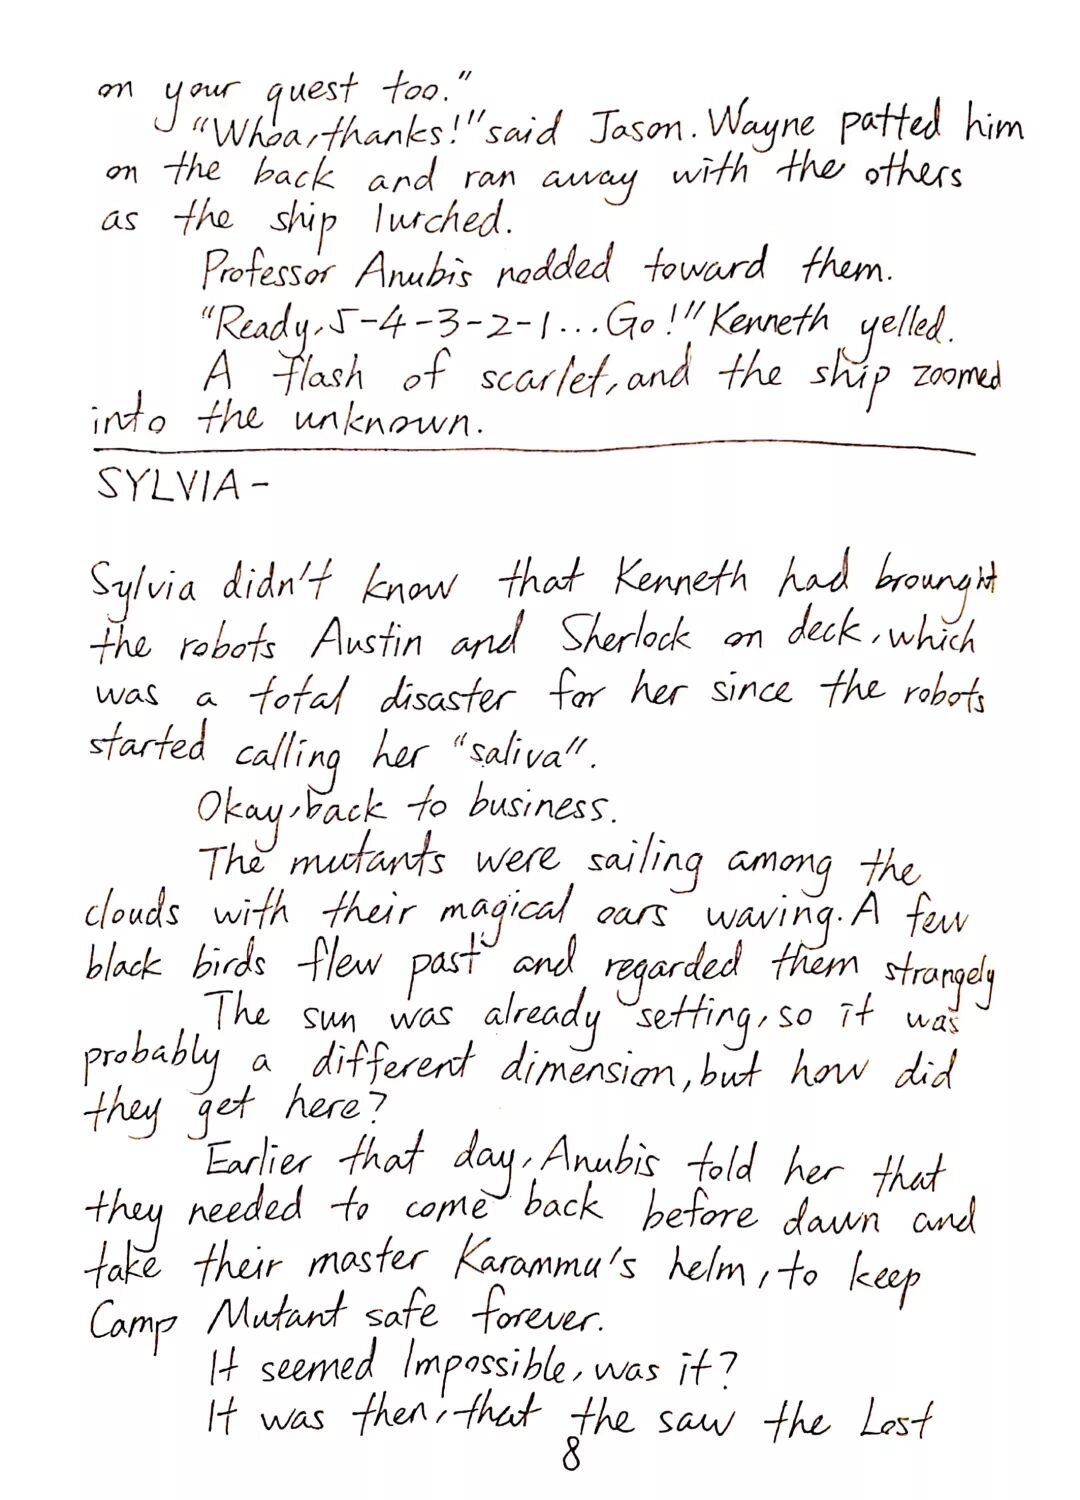 on your quest too."
"Whoa, thanks!" said Jason. Wayne patted him
on the back and ran away with the others
as the ship lurched.
Professor Anubis nodded toward them.
"Ready, 5-4-3-2-1...Go!" Kenneth yelled.
A flash of scarlet, and the ship zoomed
into the unknown.
SYLVIA-
Sylvia didn't know that Kenneth had brounght
the robots Austin and Sherlock on deck, which
was a total disaster for her since the robots
started calling her "saliva".
Okay, back to business.
The mutants were sailing among the
clouds with their magical oars waving. A few
black birds flew past and regarded them strangely
The sun was already setting, so it was
probably a different dimension, but how did
they get here?
Earlier that day, Anubis told her that
they needed to come back before dawn and
take their master Karammu's helm, to keep
Camp Mutant safe forever.
It seemed Impossible, was it?
It was then, that the saw the Lost
8